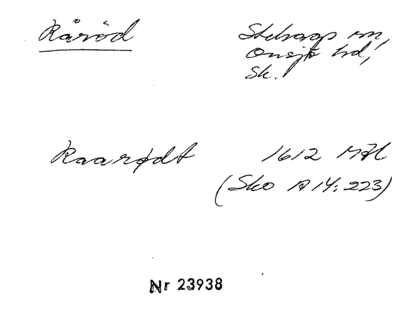 Råröd
Stehags sn,
Onsjö hd,
Sk.
Raarødt 1612 Mtl
(Sko A 14: 223)
Nr 23938